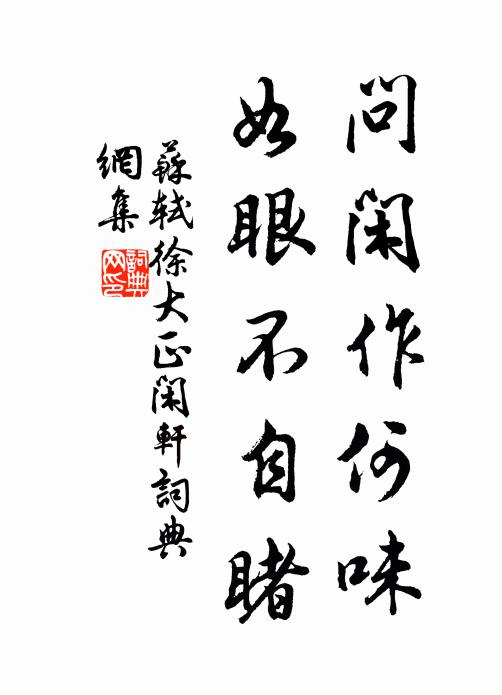 問閑作何味
如眼不自睹
蘇軾徐大正閑軒詞典
網集
詞典
网印